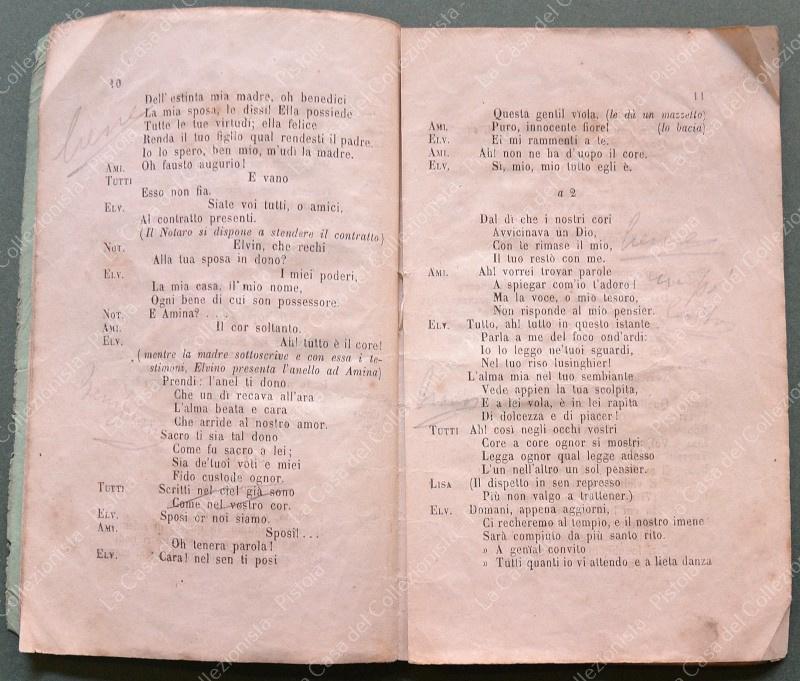 10
Dell'estinta mia madre, oh benedici
La mia sposa, le dissi! Ella possiede
Tutte le tue virtudi; ella felice
Renda il tuo figlio qual rendesti il padre.
Io lo spero, ben mio, m'udì la madre.
AMI. Oh fausto augurio!
TUTTI E vano
Esso non fia.
ELV. Siate voi tutti, o amici,
Al contratto presenti.
(Il Notaro si dispone a stendere il contratto)
NOT. Elvin, che rechi
Alla tua sposa in dono?
ELV. I miei poderi,
La mia casa, il mio nome,
Ogni bene di cui son possessore.
NOT. E Amina? . . .
AMI. Il cor soltanto.
ELV. Ah! tutto è il core!
(mentre la madre sottoscrive e con essa i te-
stimoni, Elvino presenta l'anello ad Amina)
Prendi: l'anel ti dono
Che un dì recava all'ara
L'alma beata e cara
Che arride al nostro amor.
Sacro ti sia tal dono
Come fu sacro a lei;
Sia de'tuoi voti e miei
Fido custode ognor.
TUTTI Scritti nel ciel già sono
Come nel vostro cor.
ELV. Sposi or noi siamo.
AMI. Sposi! . . .
Oh tenera parola!
ELV. Cara! nel sen ti posi
11
Questa gentil viola. (le dà un mazzetto)
AMI. Puro, innocente fiore! (lo bacia)
ELV. Ei mi rammenti a te.
AMI. Ah! non ne ha d'uopo il core.
ELV. Sì, mio, mio tutto egli è.
a 2
Dal dì che i nostri cori
Avvicinava un Dio,
Con te rimase il mio,
Il tuo restò con me.
AMI. Ah! vorrei trovar parole
A spiegar com'io t'adoro!
Ma la voce, o mio tesoro,
Non risponde al mio pensier.
ELV. Tutto, ah! tutto in questo istante
Parla a me del foco ond'ardi:
Io lo leggo ne'tuoi sguardi,
Nel tuo riso lusinghier!
L'alma mia nel tuo sembiante
Vede appien la tua scolpita,
E a lei vola, è in lei rapita
Di dolcezza e di piacer!
TUTTI Ah! così negli occhi vostri
Core a core ognor si mostri:
Legga ognor qual legge adesso
L'un nell'altro un sol pensier.
LISA (Il dispetto in sen represso
Più non valgo a trattener.)
ELV. Domani, appena aggiorni,
Ci recheremo al tempio, e il nostro imene
Sarà compiuto da più santo rito.
» A genial convito
» Tutti quanti io vi attendo e a lieta danza
La Casa del Collezionista - Pistoia